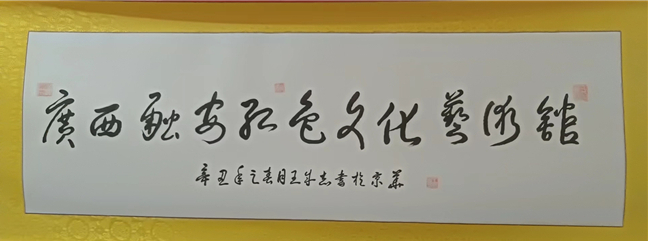 廣西融安紅色文化藝術館
辛丑年之春月王生志書於京華